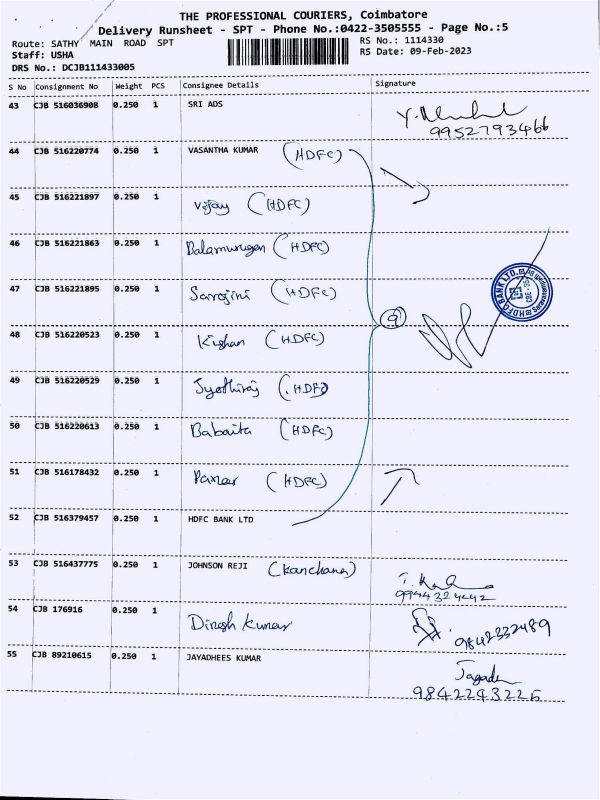 THE PROFESSIONAL COURIERS, Coimbatore
Delivery Runsheet - SPT - Phone No.:0422-3505555 - Page No.:5
Route: SATHY MAIN ROAD SPT
RS No.: 1114330
Staff: USHA
RS Date: 09-Feb-2023
DRS No.: DCJB111433005
S No Consignment No Weight PCS Consignee Details Signature
43 CJB 516036908 0.250 1 SRI ADS
9952793466
44 CJB 516220774 0.250 1 VASANTHA KUMAR (HDFC)
45 CJB 516221897 0.250 1 Vijay (HDFC)
46 CJB 516221863 0.250 1 Balamurugan (HDFC)
47 CJB 516221895 0.250 1 Sarojini (HDFC)
HDFC BANK LTD.
9
48 CJB 516220523 0.250 1 Kishan (HDFC)
49 CJB 516220529 0.250 1 Jyothiraj (HDFC)
50 CJB 516220613 0.250 1 Babaita (HDFC)
51 CJB 516178432 0.250 1 (HDFC)
52 CJB 516379457 0.250 1 HDFC BANK LTD
53 CJB 516437775 0.250 1 JOHNSON REJI (Kanchana)
9944324242
54 CJB 176916 0.250 1 Dinesh Kumar
9842332489
55 CJB 89210615 0.250 1 JAYADHEES KUMAR
9842243225